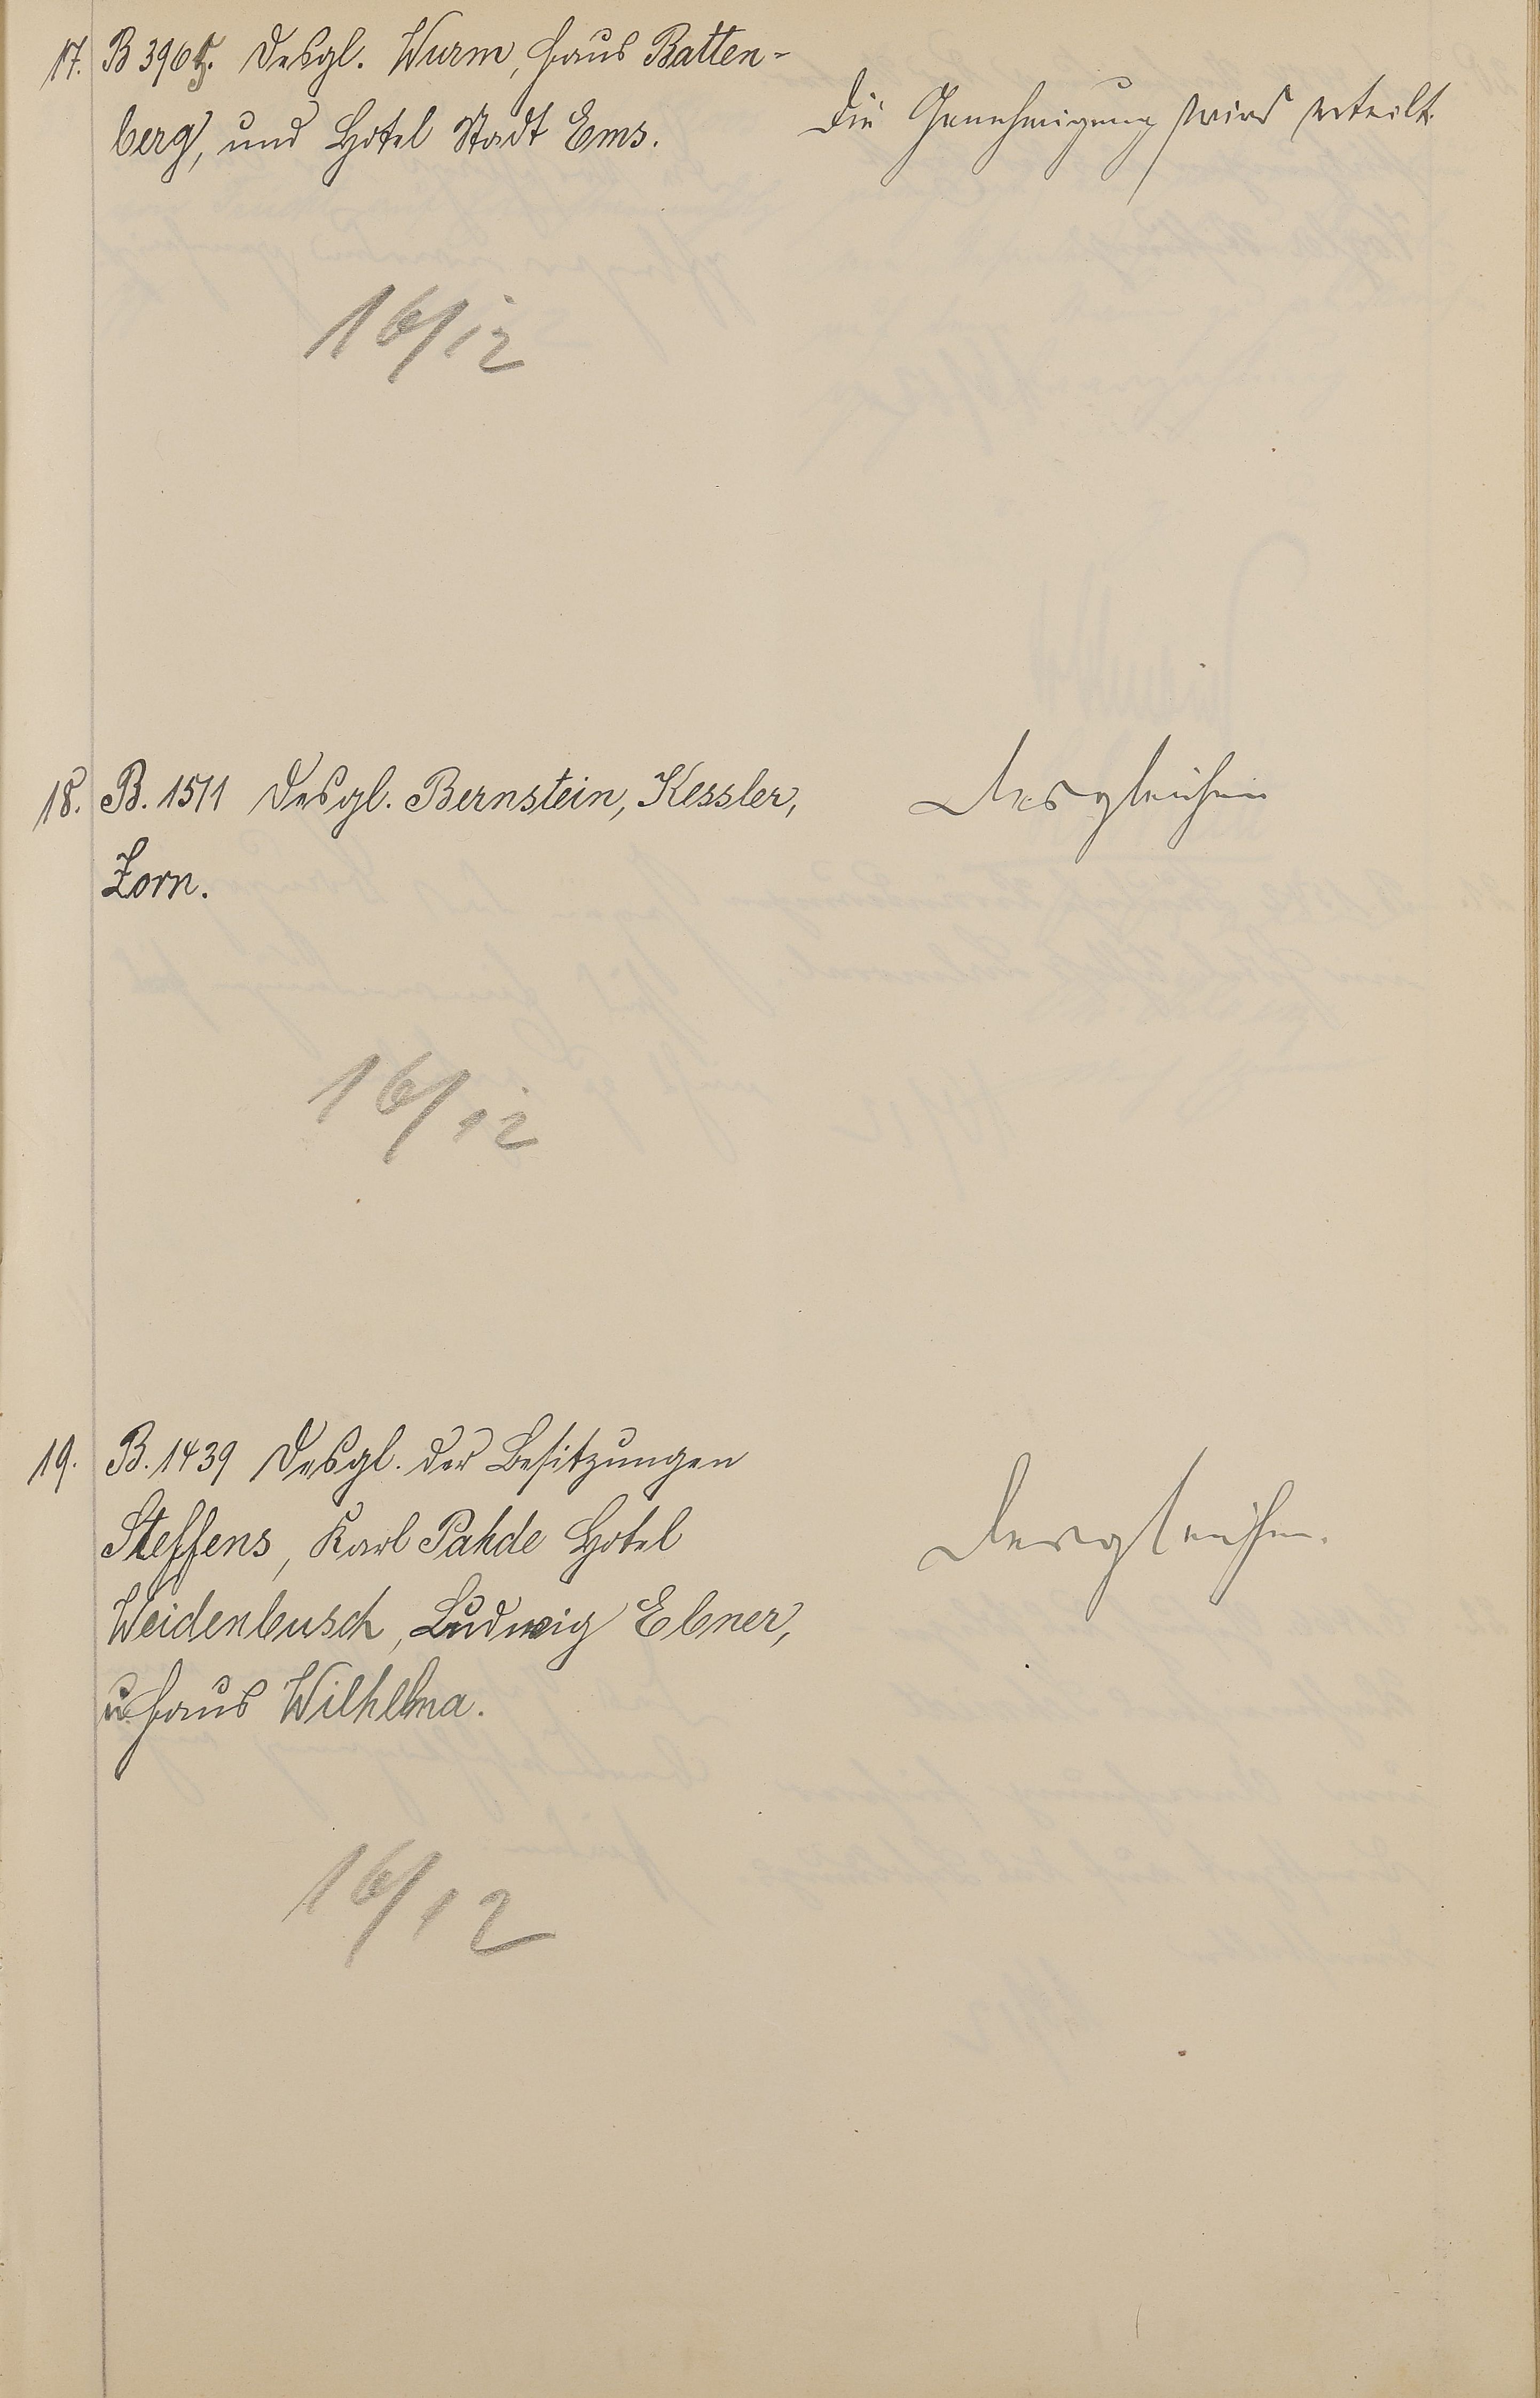 17. B 3965. Desgl. Wurm, Haus Batten-
berg, und Hotel Stadt Ems.
Die Genehmigung wird erteilt.
16/12
18. B. 1511 Desgl. Bernstein, Kessler,
Zorn.
Desgleichen
16/12
19. B. 1439 Desgl. der Besitzungen
Steffens, Karl Pahde Hotel
Weidenbusch, Ludwig Ebner,
u Haus Wilhelma.
Desgleichen.
16/12